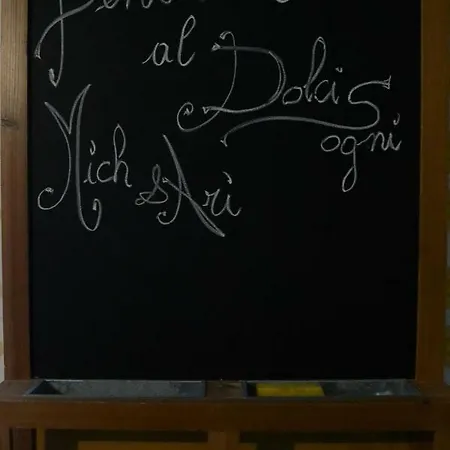 al Dolci Sogni
Mich & Ari